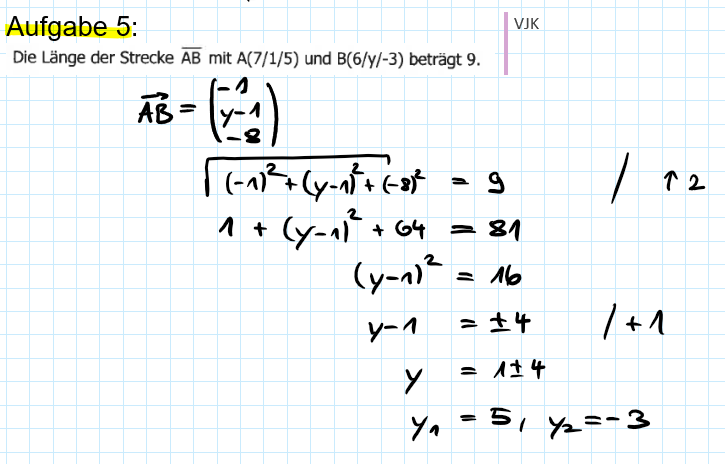 Aufgabe 5:
VJK
Die Länge der Strecke A̅B̅ mit A(7/1/5) und B(6/y/-3) beträgt 9.
A⃗B⃗ = (-1 / y-1 / -8)
√((-1)² + (y-1)² + (-8)²) = 9 / ↑2
1 + (y-1)² + 64 = 81
(y-1)² = 16
y-1 = ±4 / +1
y = 1±4
y₁ = 5, y₂ = -3